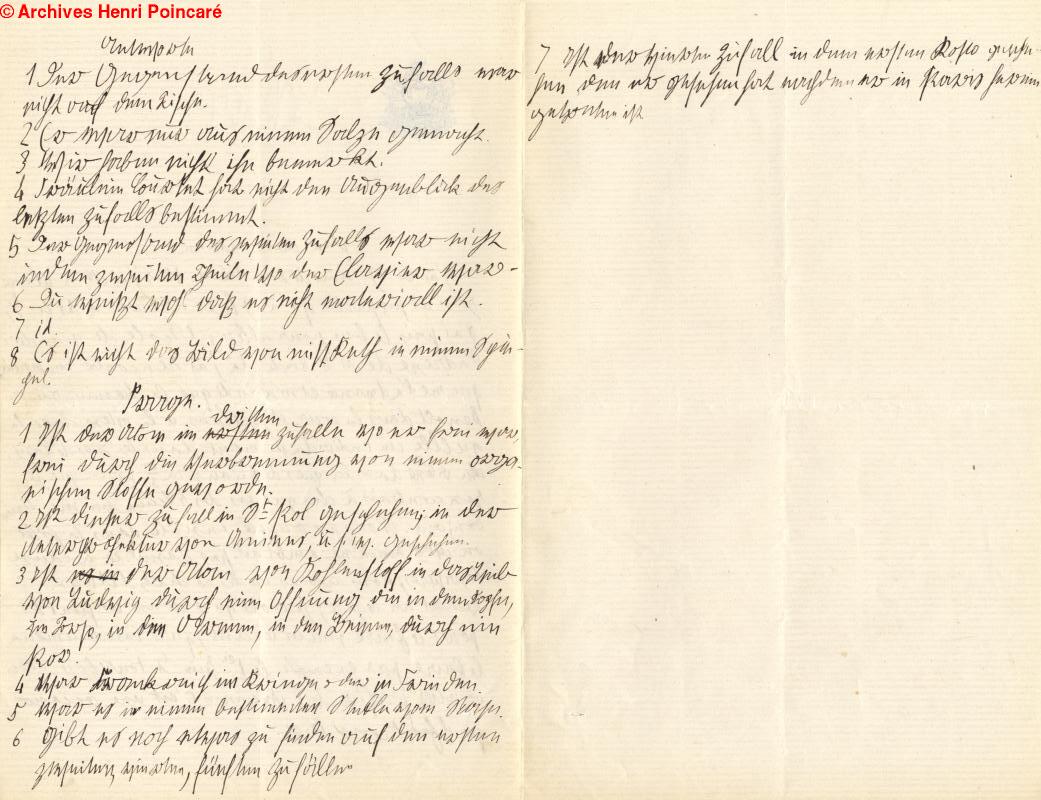 © Archives Henri Poincaré
Antworte
1 Der Gegenstand des ersten Zufalls war
nicht auf dem Tische.
2 Er war nur aus einem Salze gemacht.
3 Wir haben nicht ihn bemerkt.
4 Fräulein hat nicht den Augenblick des
letzten Zufalls bestimmt.
5 Der Gegenstand des zweiten Zufalls war nicht
in dem zweiten Theile wo der Clavier war -
6 Du weißt wohl daß es nicht materiall ist.
7 id.
8 Es ist nicht das Bild von miss Ruth in einem Spie-
gel.
Frage.
dritten
1 Ist der Atom im ersten Zufalle wo er frei war,
frei durch die Verbrennung von einem orga-
nischen Stoffe geworden.
2 Ist dieser Zufall in St Pol geschehen, in der
von Amiens, u.s.w. geschehen.
3 Ist es in der Atom von Kohlenstoff in das Leib
von Ludwig durch eine Öffnung die in dem Kopfe,
im in den Armen, in den Beinen, durch ein
4 War Frankreich im Kriege oder in Frieden.
5 War es in einem bestimmten Stelle vom
6 Gibt es noch etwas zu finden auf den ersten
zweiten, vierten, fünften Zufälle
7 Ist der vierte Zufall in dem ersten gesche-
hen den er gesehen hat nachdem er in Paris herein
getreten ist